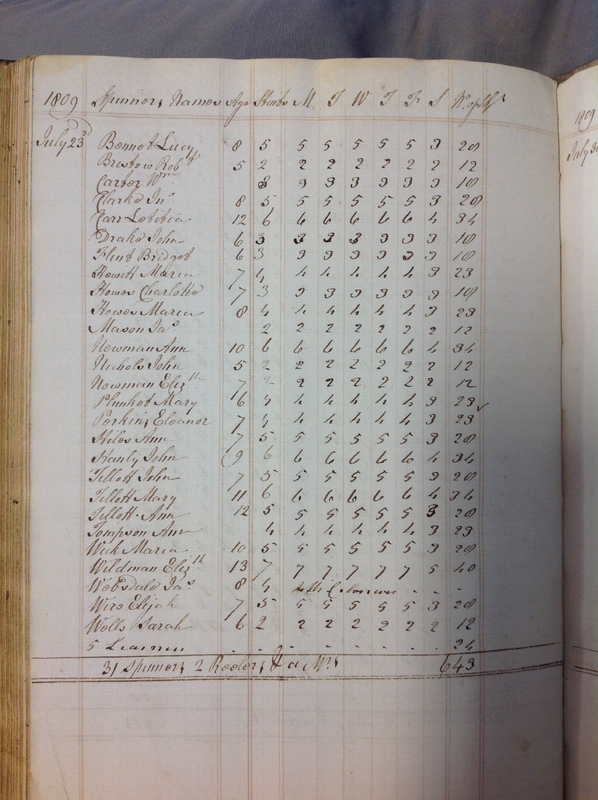 1809 Spinners Names Age Skeins M T W T F S No of Sks
1809
July 23d Bennet Lucy 8 5 5 5 5 5 5 3 28
July 30
Bristow Robt 5 2 2 2 2 2 2 2 12
Carter Wm 3 3 3 3 3 3 3 18
Clarke Jno 8 5 5 5 5 5 5 3 28
Carr Letitia 12 6 6 6 6 6 6 4 34
Drake John 6 3 3 3 3 3 3 3 18
Flint Bridget 6 3 3 3 3 3 3 3 18
Howett Maria 7 4 4 4 4 4 4 3 23
Howes Charlotte 7 3 3 3 3 3 3 3 18
Howes Maria 8 4 4 4 4 4 4 3 23
Mason Jas 2 2 2 2 2 2 2 12
Newman Ann 10 6 6 6 6 6 6 4 34
Nichols John 5 2 2 2 2 2 2 2 12
Newman Elizth 7 2 2 2 2 2 2 2 12
Plunket Mary 6 4 4 4 4 4 4 3 23
Perkins Eleanor 7 4 4 4 4 4 4 3 23
Stiles Ann 7 5 5 5 5 5 5 3 28
Stanly John 9 6 6 6 6 6 6 4 34
Tillott John 7 5 5 5 5 5 5 3 28
Tillott Mary 11 6 6 6 6 6 6 4 34
Tillott Ann 12 5 5 5 5 5 5 3 28
Tompson Ann 4 4 4 4 4 4 3 23
Wick Maria 10 5 5 5 5 5 5 3 28
Wildman Elizth 13 7 7 7 7 7 7 5 40
Websdale Jas 8 4
Wire Elijah 7 5 5 5 5 5 5 3 28
Wells Sarah 6 2 2 2 2 2 2 2 12
5 Learners 24
31 Spinners 2 Reelers & a Ms 643